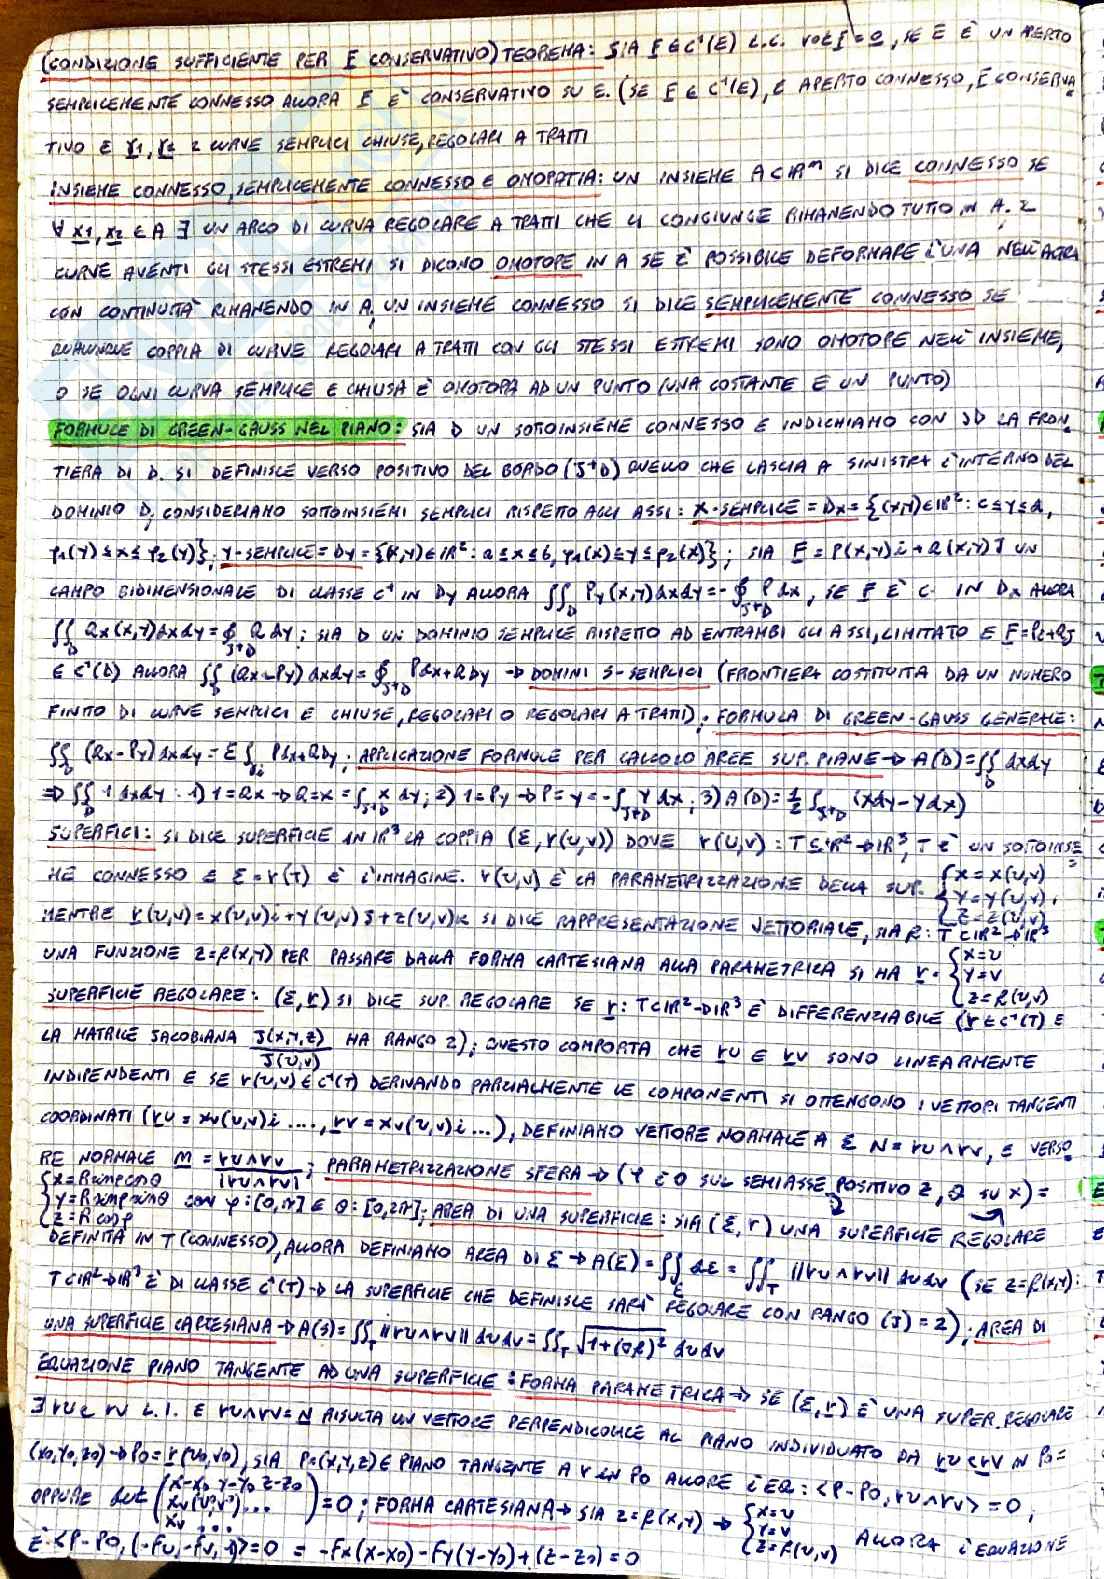 (CONDIZIONE SUFFICIENTE PER F CONSERVATIVO) TEOREMA: SIA F ∈ C¹(E) L.C. rot F = 0, SE E È UN APERTO
SEMPLICEMENTE CONNESSO ALLORA F È CONSERVATIVO SU E. (SE F ∈ C¹(E), E APERTO CONNESSO, F CONSERVA
TIVO E γ1, γ2 2 CURVE SEMPLICI CHIUSE, REGOLARI A TRATTI
INSIEME CONNESSO, SEMPLICEMENTE CONNESSO E OMOPATIA: UN INSIEME A⊂ℝᵐ SI DICE CONNESSO SE
∀ x1, x2 ∈ A ∃ UN ARCO DI CURVA REGOLARE A TRATTI CHE LI CONGIUNGE RIMANENDO TUTTO IN A. 2
CURVE AVENTI GLI STESSI ESTREMI SI DICONO OMOTOPE IN A SE È POSSIBILE DEFORMARE L'UNA NELL'ALTRA
CON CONTINUITÀ RIMANENDO IN A, UN INSIEME CONNESSO SI DICE SEMPLICEMENTE CONNESSO SE
QUALUNQUE COPPIA DI CURVE REGOLARI A TRATTI CON GLI STESSI ESTREMI SONO OMOTOPE NELL'INSIEME,
O SE OGNI CURVA SEMPLICE E CHIUSA È OMOTOPA AD UN PUNTO (UNA COSTANTE E UN PUNTO)
FORMULE DI GREEN-GAUSS NEL PIANO: SIA D UN SOTTOINSIEME CONNESSO E INDICHIAMO CON ∂D LA FRON
TIERA DI D. SI DEFINISCE VERSO POSITIVO DEL BORDO (∂+D) QUELLO CHE LASCIA A SINISTRA L'INTERNO DEL
DOMINIO D, CONSIDERIAMO SOTTOINSIEMI SEMPLICI RISPETTO AGLI ASSI: X-SEMPLICE = Dx = {(x,y)∈ℝ²: c≤y≤d,
φ1(y)≤x≤φ2(y)}; Y-SEMPLICE = Dy = {(x,y)∈ℝ²: a≤x≤b, φ1(x)≤y≤φ2(x)}; SIA F = P(x,y)i + Q(x,y)J UN
CAMPO BIDIMENSIONALE DI CLASSE C¹ IN Dy ALLORA ∬_D Py(x,y)dxdy = -∮_∂+D P dx, SE F È C¹ IN Dx ALLORA
∬_D Qx(x,y)dxdy = ∮_∂+D Q dy; SIA D UN DOMINIO SEMPLICE RISPETTO AD ENTRAMBI GLI ASSI, LIMITATO E F=Pi+Qj
∈ C¹(D) ALLORA ∬_D (Qx-Py) dxdy = ∮_∂+D Pdx+QDy → DOMINI S-SEMPLICI (FRONTIERA COSTITUITA DA UN NUMERO
FINITO DI CURVE SEMPLICI E CHIUSE, REGOLARI O REGOLARI A TRATTI); FORMULA DI GREEN-GAUSS GENERALE:
∬_D (Qx-Py) dxdy = Σ ∫_γi Pdx+QDy; APPLICAZIONE FORMULE PER CALCOLO AREE SUP. PIANE → A(D) = ∬_D dxdy
⇒ ∬_D 1 dxdy: 1) 1=Qx → Q=x = ∫_∂+D x dy; 2) 1=Py → P=y = -∫_∂+D y dx; 3) A(D) = ½ ∫_∂+D (xdy-ydx)
SUPERFICI: SI DICE SUPERFICIE IN ℝ³ LA COPPIA (Σ, r(u,v)) DOVE r(u,v): T⊆ℝ²→ℝ³, T È UN SOTTOINSIE
ME CONNESSO E Σ=r(T) È L'IMMAGINE. r(u,v) È LA PARAMETRIZZAZIONE DELLA SUP. {x=x(u,v) y=y(u,v), z=z(u,v)
MENTRE r(u,v)=x(u,v)i+y(u,v)J+z(u,v)k SI DICE RAPPRESENTAZIONE VETTORIALE, SIA f: T⊂ℝ²→ℝ³
UNA FUNZIONE z=f(x,y) PER PASSARE DALLA FORMA CARTESIANA ALLA PARAMETRICA SI HA r: {x=u y=v z=f(u,v)
SUPERFICIE REGOLARE: (Σ, r) SI DICE SUP. REGOLARE SE r: T⊂ℝ²→ℝ³ È DIFFERENZIABILE (r∈C¹(T) E
LA MATRICE JACOBIANA ∂(x,y,z)/∂(u,v) HA RANGO 2); QUESTO COMPORTA CHE ru E rv SONO LINEARMENTE
INDIPENDENTI E SE r(u,v)∈C¹(T) DERIVANDO PARZIALMENTE LE COMPONENTI SI OTTENGONO I VETTORI TANGENTI
COORDINATI (ru = xu(u,v)i ...., rv = xv(u,v)i ...), DEFINIAMO VETTORE NORMALE A Σ N = ru∧rv, E VERSO
RE NORMALE m = ru∧rv/|ru∧rv|; PARAMETRIZZAZIONE SFERA → (φ È 0 SUL SEMIASSE POSITIVO Z, θ SU X) =
{x=Rsinφcosθ y=Rsinφsinθ z=Rcosφ CON φ: [0,π] E θ: [0,2π]; AREA DI UNA SUPERFICIE: SIA (Σ, r) UNA SUPERFICIE REGOLARE
DEFINITA IN T (CONNESSO), ALLORA DEFINIAMO AREA DI Σ → A(Σ) = ∬_Σ dΣ = ∬_T ||ru∧rv|| dudv (SE z=f(x,y):
T⊂ℝ²→ℝ³ È DI CLASSE C¹(T) → LA SUPERFICIE CHE DEFINISCE SARÀ REGOLARE CON RANGO (J) = 2); AREA DI
UNA SUPERFICIE CARTESIANA → A(S) = ∬_T ||ru∧rv|| dudv = ∬_T √(1+(∇f)²) dudv
EQUAZIONE PIANO TANGENTE AD UNA SUPERFICIE: FORMA PARAMETRICA → SE (Σ, r) È UNA SUPER. REGOLARE
∃ ru E rv L.I. E ru∧rv=N RISULTA UN VETTORE PERPENDICOLARE AL PIANO INDIVIDUATO DA ru E rv IN P0=
(x0,y0,z0) → P0 = r(u0,v0), SIA P=(x,y,z) ∈ PIANO TANGENTE A r IN P0 ALLORA L'EQ: <P-P0, ru∧rv> = 0,
OPPURE det (x-x0 y-y0 z-z0 xu(u,v)... xv ...) = 0; FORMA CARTESIANA → SIA z=f(x,y) → {x=u y=v z=f(u,v) ALLORA L'EQUAZIONE
È <P-P0, (-fu, -fv, 1)> = 0 = -fx(x-x0) - fy(y-y0) + (z-z0) = 0